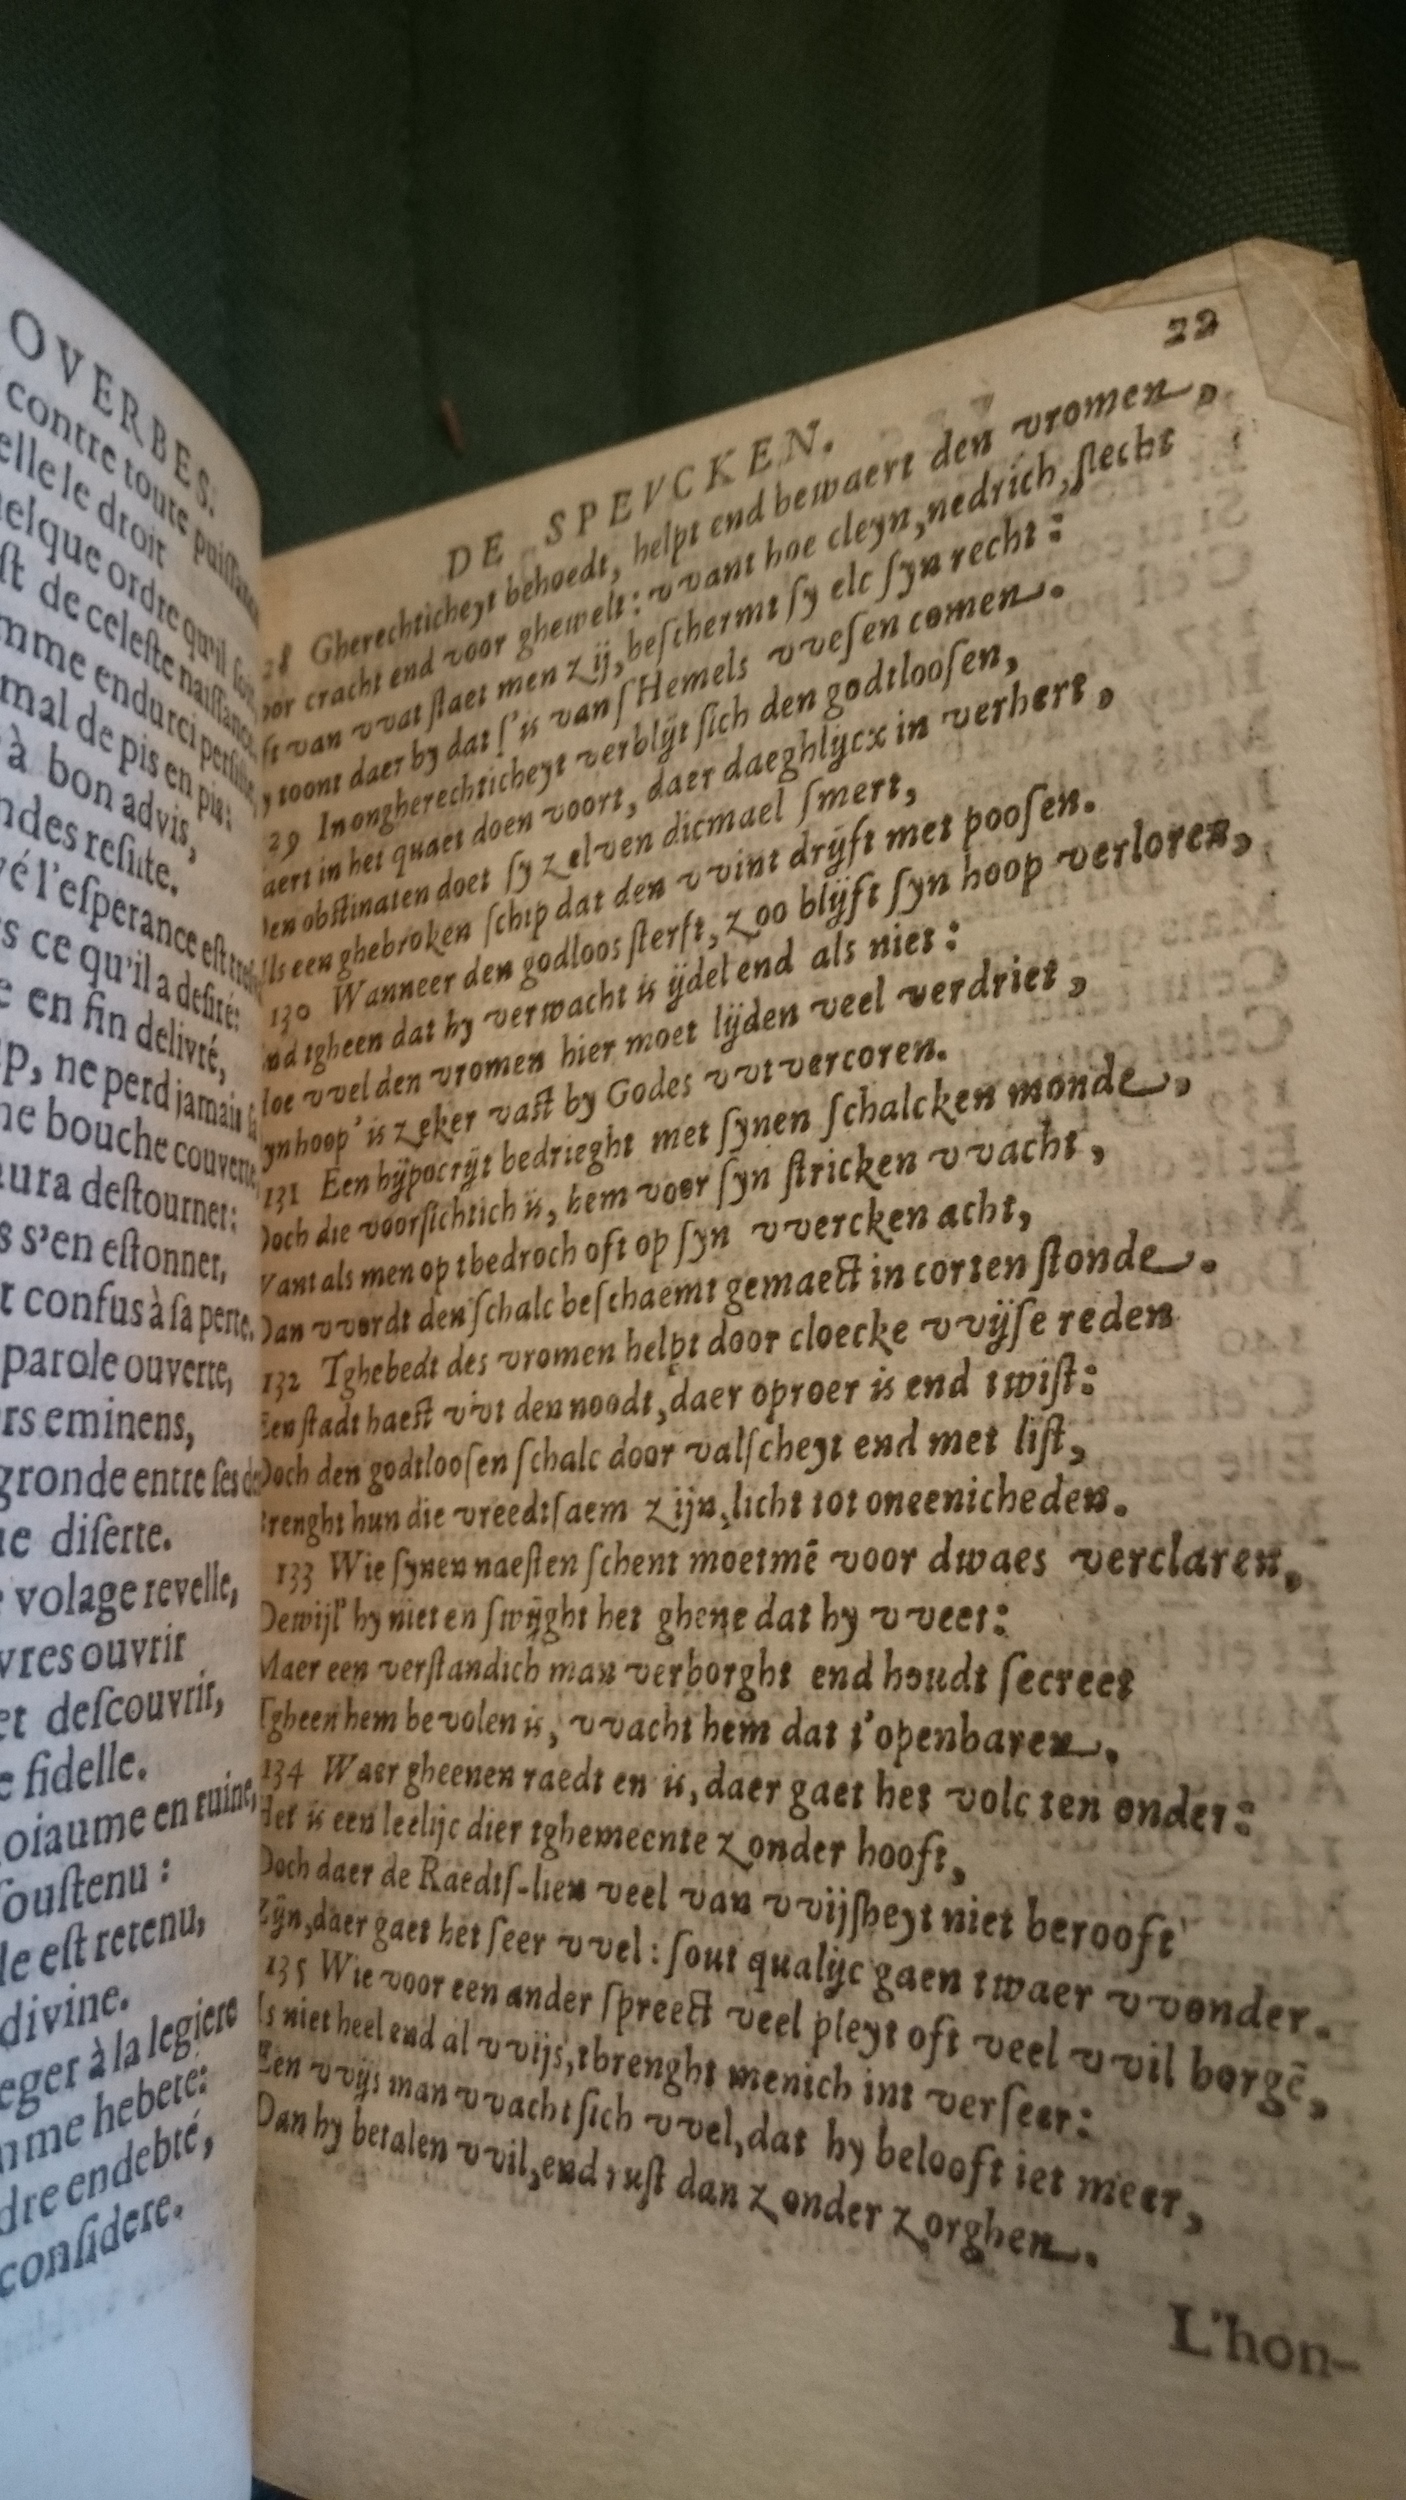 OVERBES.
contre toute puissanc
elle le droit
elque ordre qu'il soit
st de celeste naissance.
mme endurci persiste,
mal de pis en pis:
à bon advis,
ndes resiste.
vé l'esperance est
s ce qu'il a desiré:
e en fin delivré,
p, ne perd jamais
ne bouche couverte,
ura destourner:
s s'en estonner,
t confus à sa perte.
parole ouverte,
rs eminens,
gronde entre ses de
ue diserte.
volage revelle,
vres ouvrir
et descouvrir,
e fidelle.
oiaume en ruine,
soustenu :
le est retenu,
divine.
eger à la legiere
mme hebeté:
dre endebté,
considere.
22
DE SPEVCKEN.
28 Gherechticheyt behoedt, helpt end bewaert den vromen,
oor cracht end voor ghewelt: vvant hoe cleyn, nedrich, slecht
ft van vvat staet men zij, beschermt sy elc syn recht:
y toont daer by dat s'is van s Hemels vvesen comen.
29 In ongherechticheyt verblijt sich den godtloosen,
aert in het quaet doen voort, daer daeghlijcx in verhert,
Den obstinaten doet sy zelven dicmael smert,
Als een ghebroken schip dat den vvint drijft met poosen.
130 Wanneer den godloos sterft, zoo blijft syn hoop verloren,
nd tgheen dat hy verwacht is ijdel end als niet:
loe vvel den vromen hier moet lijden veel verdriet,
ynhoop' is zeker vast by Godes vvt vercoren.
131 Een hijpocrijt bedrieght met synen schalcken monde,
Doch die voorsichtich is, hem voor syn stricken vvacht,
Vant als men op tbedroch oft op syn vvercken acht,
Dan vvordt den schalc beschaemt gemaect in corten stonde.
132 Tghebedt des vromen helpt door cloecke vvijse reden
Een stadt haest vvt den noodt, daer oproer is end twist:
Doch den godtloosen schalc door valscheyt end met list,
Brenght hun die vreedtsaem zijn, licht tot oneenicheden.
133 Wie synen naesten schent moetmē voor dwaes verclaren,
Dewijl' hy niet en swijght het ghene dat hy vveet:
Maer een verstandich man verborght end houdt secreet
Tgheen hem bevolen is, vvacht hem dat t'openbaren.
134 Waer gheenen raedt en is, daer gaet het volc ten onder:
Het is een leelijc dier tghemeente zonder hooft,
Doch daer de Raedts-lien veel van vvijsheyt niet berooft
Zijn, daer gaet het seer vvel: sout qualijc gaen twaer vvonder.
135 Wie voor een ander spreect veel pleyt oft veel vvil borgē,
Is niet heel end al vvijs, tbrenght menich int verseer:
Een vvijs man vvacht sich vvel, dat hy belooft iet meer,
Dan hy betalen vvil, end rust dan zonder zorghen.
L'hon-